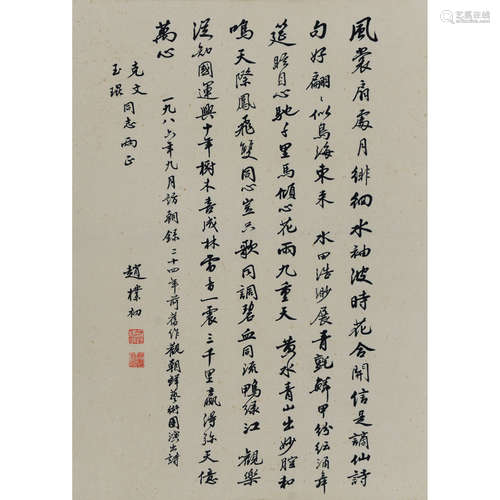 風裳扇處月徘徊水袖波時花合開信是謫仙詩
句好翩〻似鳥海東来 水田浩渺展青氈鱗甲紛紜涌舞
筵 目心馳千里馬傾心花雨九重天 黄水青山出妙腔和
鳴天際鳳飛雙同心豈只歌同調碧血同流鴨緑江 觀樂
深知國運興十年樹木喜成林雷音一震三千里贏得弥天億
萬心
一九八六年九月訪朝録二十四年前舊作觀朝鮮藝術團演出詩
克文
玉琨 同志两正
趙樸初